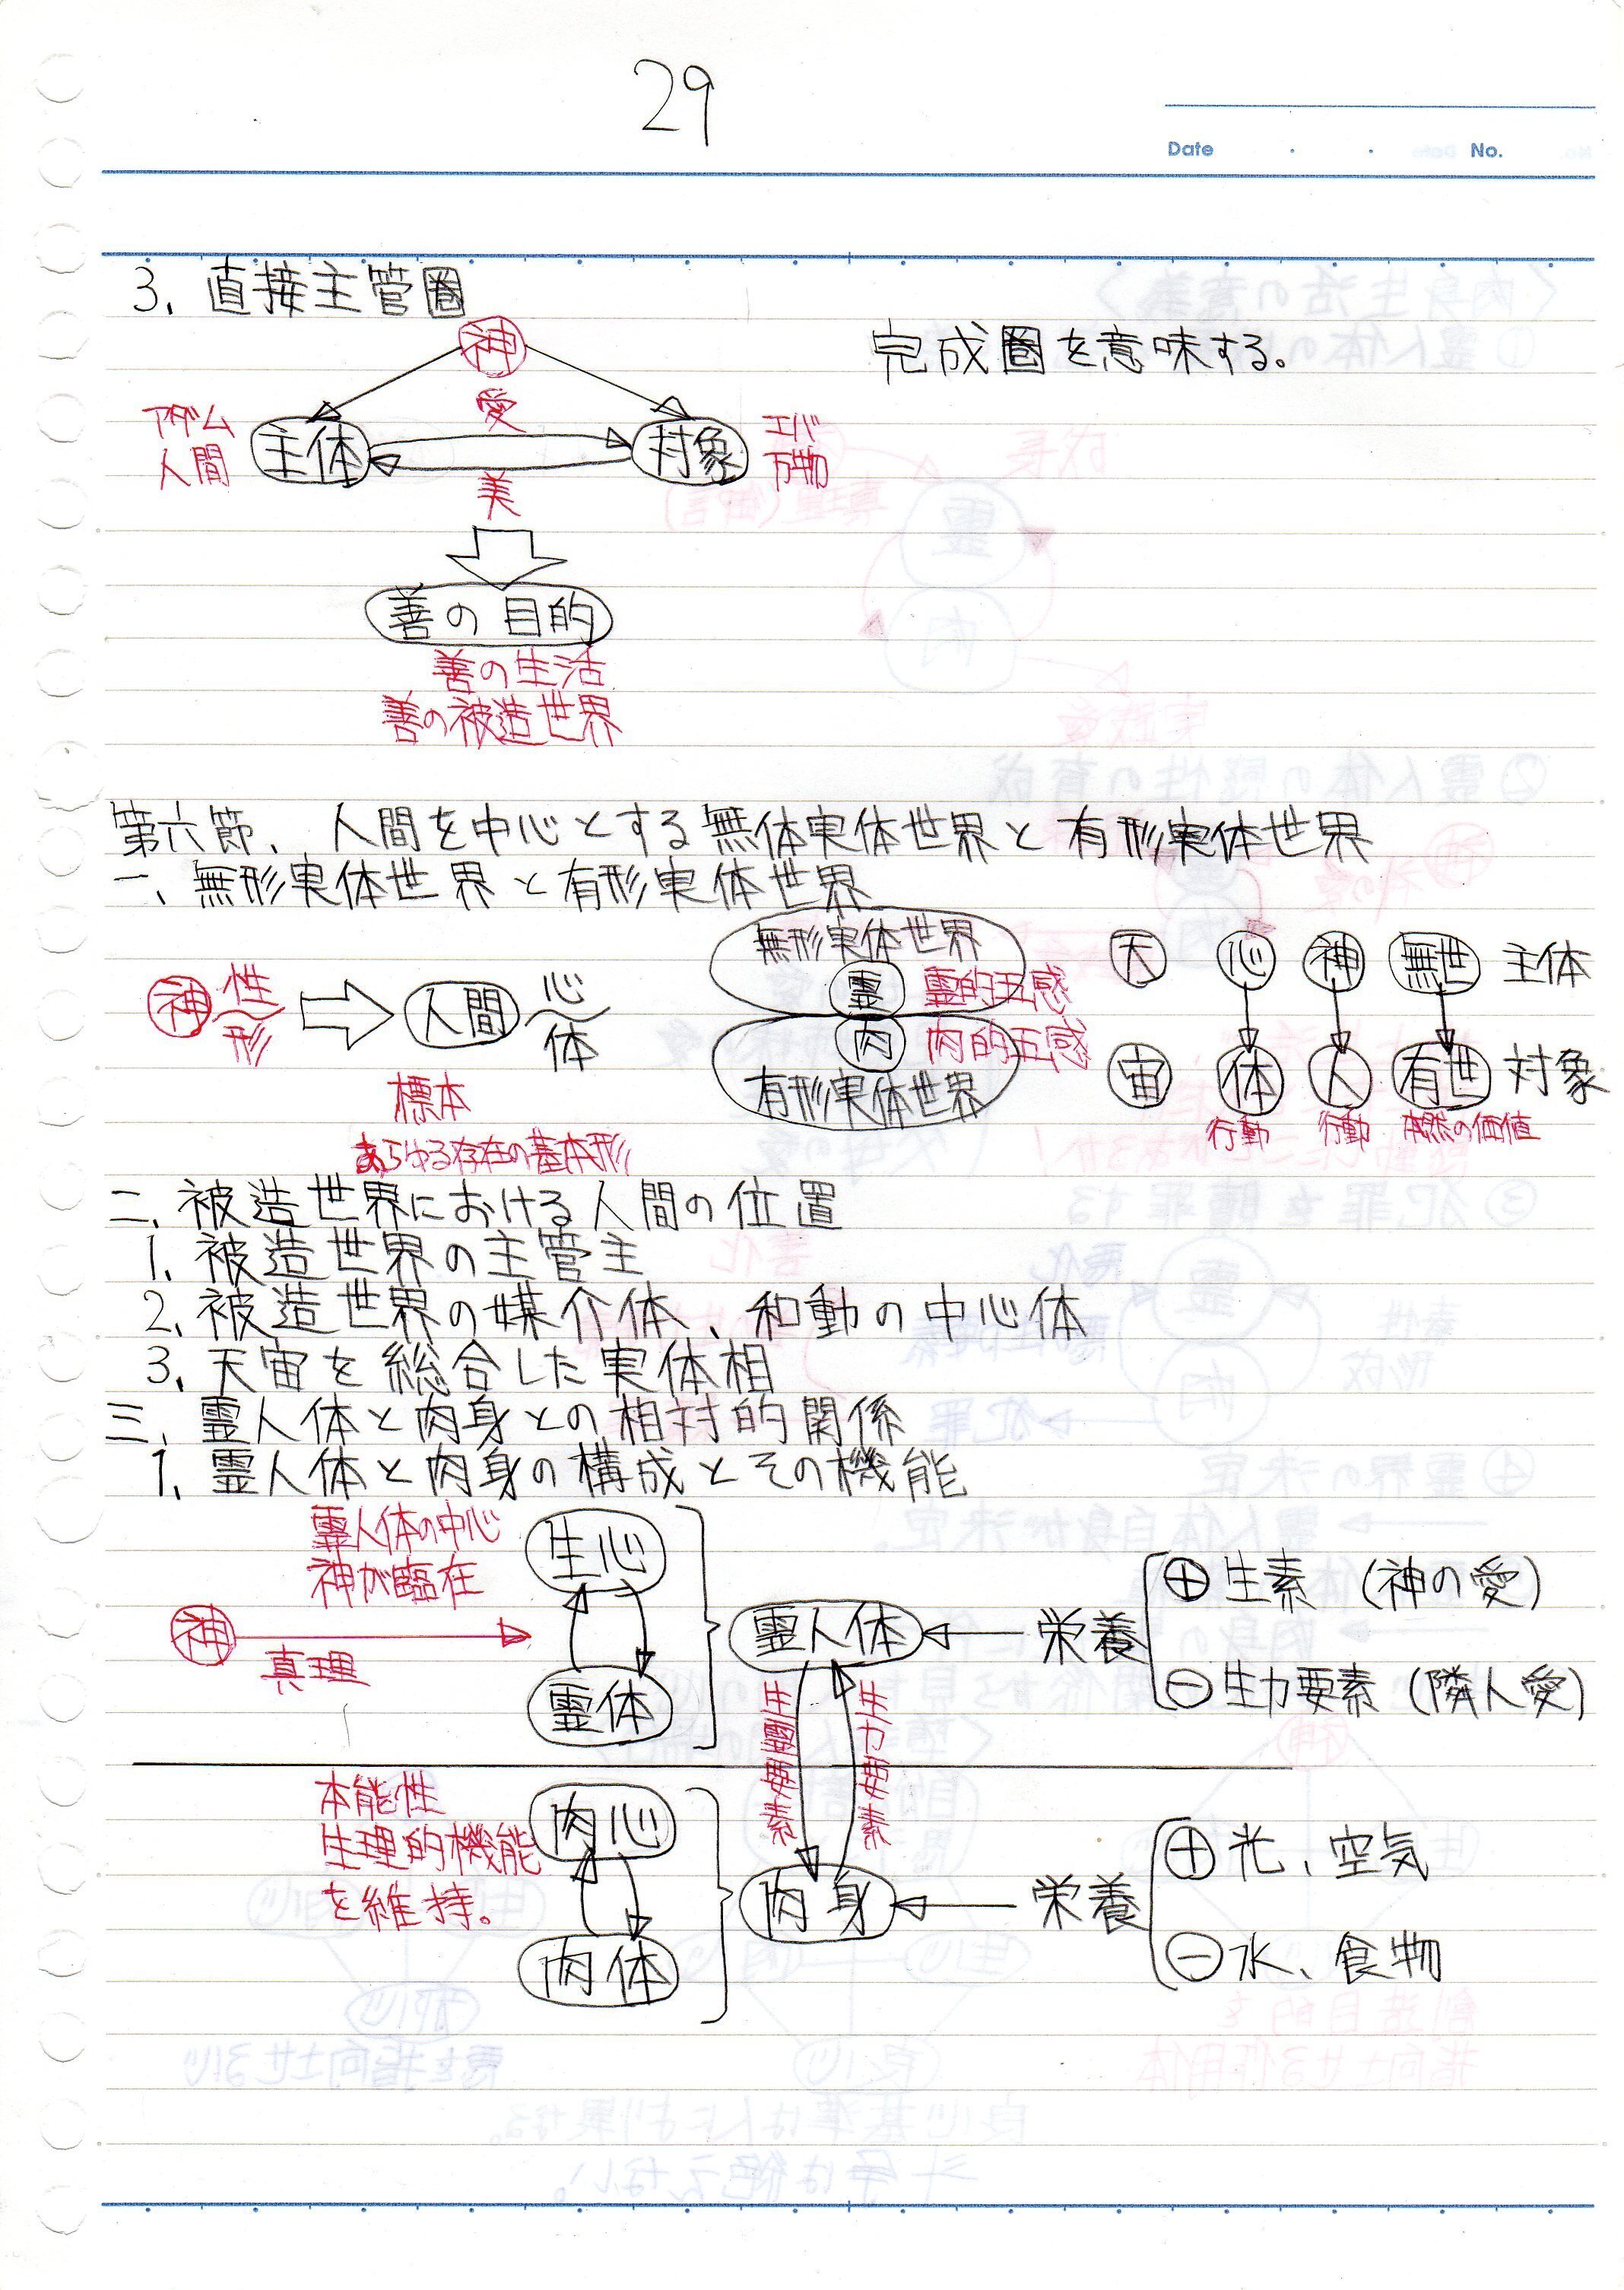 29
Date ・ ・ No.
3. 直接主管圏
神
完成圏を意味する。
愛
アダム
人間
主体
対象
エバ
万物
美
善の目的
善の生活
善の被造世界
第六節、人間を中心とする無体実体世界と有形実体世界
一、無形実体世界と有形実体世界
神 性 形
人間 心 体
標本
あらゆる存在の基本形
無形実体世界
霊 霊的五感
肉 肉的五感
有形実体世界
天 心 神 無世 主体
宙 体 人 有世 対象
行動 行動 本然の価値
二、被造世界における人間の位置
1. 被造世界の主管主
2. 被造世界の媒介体、和動の中心体
3. 天宙を総合した実体相
三、霊人体と肉身との相対的関係
1. 霊人体と肉身の構成とその機能
霊人体の中心
神が臨在
生心
神
真理
霊体
霊人体
栄養
⊕ 生素 (神の愛)
⊖ 生力要素 (隣人愛)
生霊要素
生力要素
本能性
生理的機能
を維持。
肉心
肉体
肉身
栄養
⊕ 光、空気
⊖ 水、食物